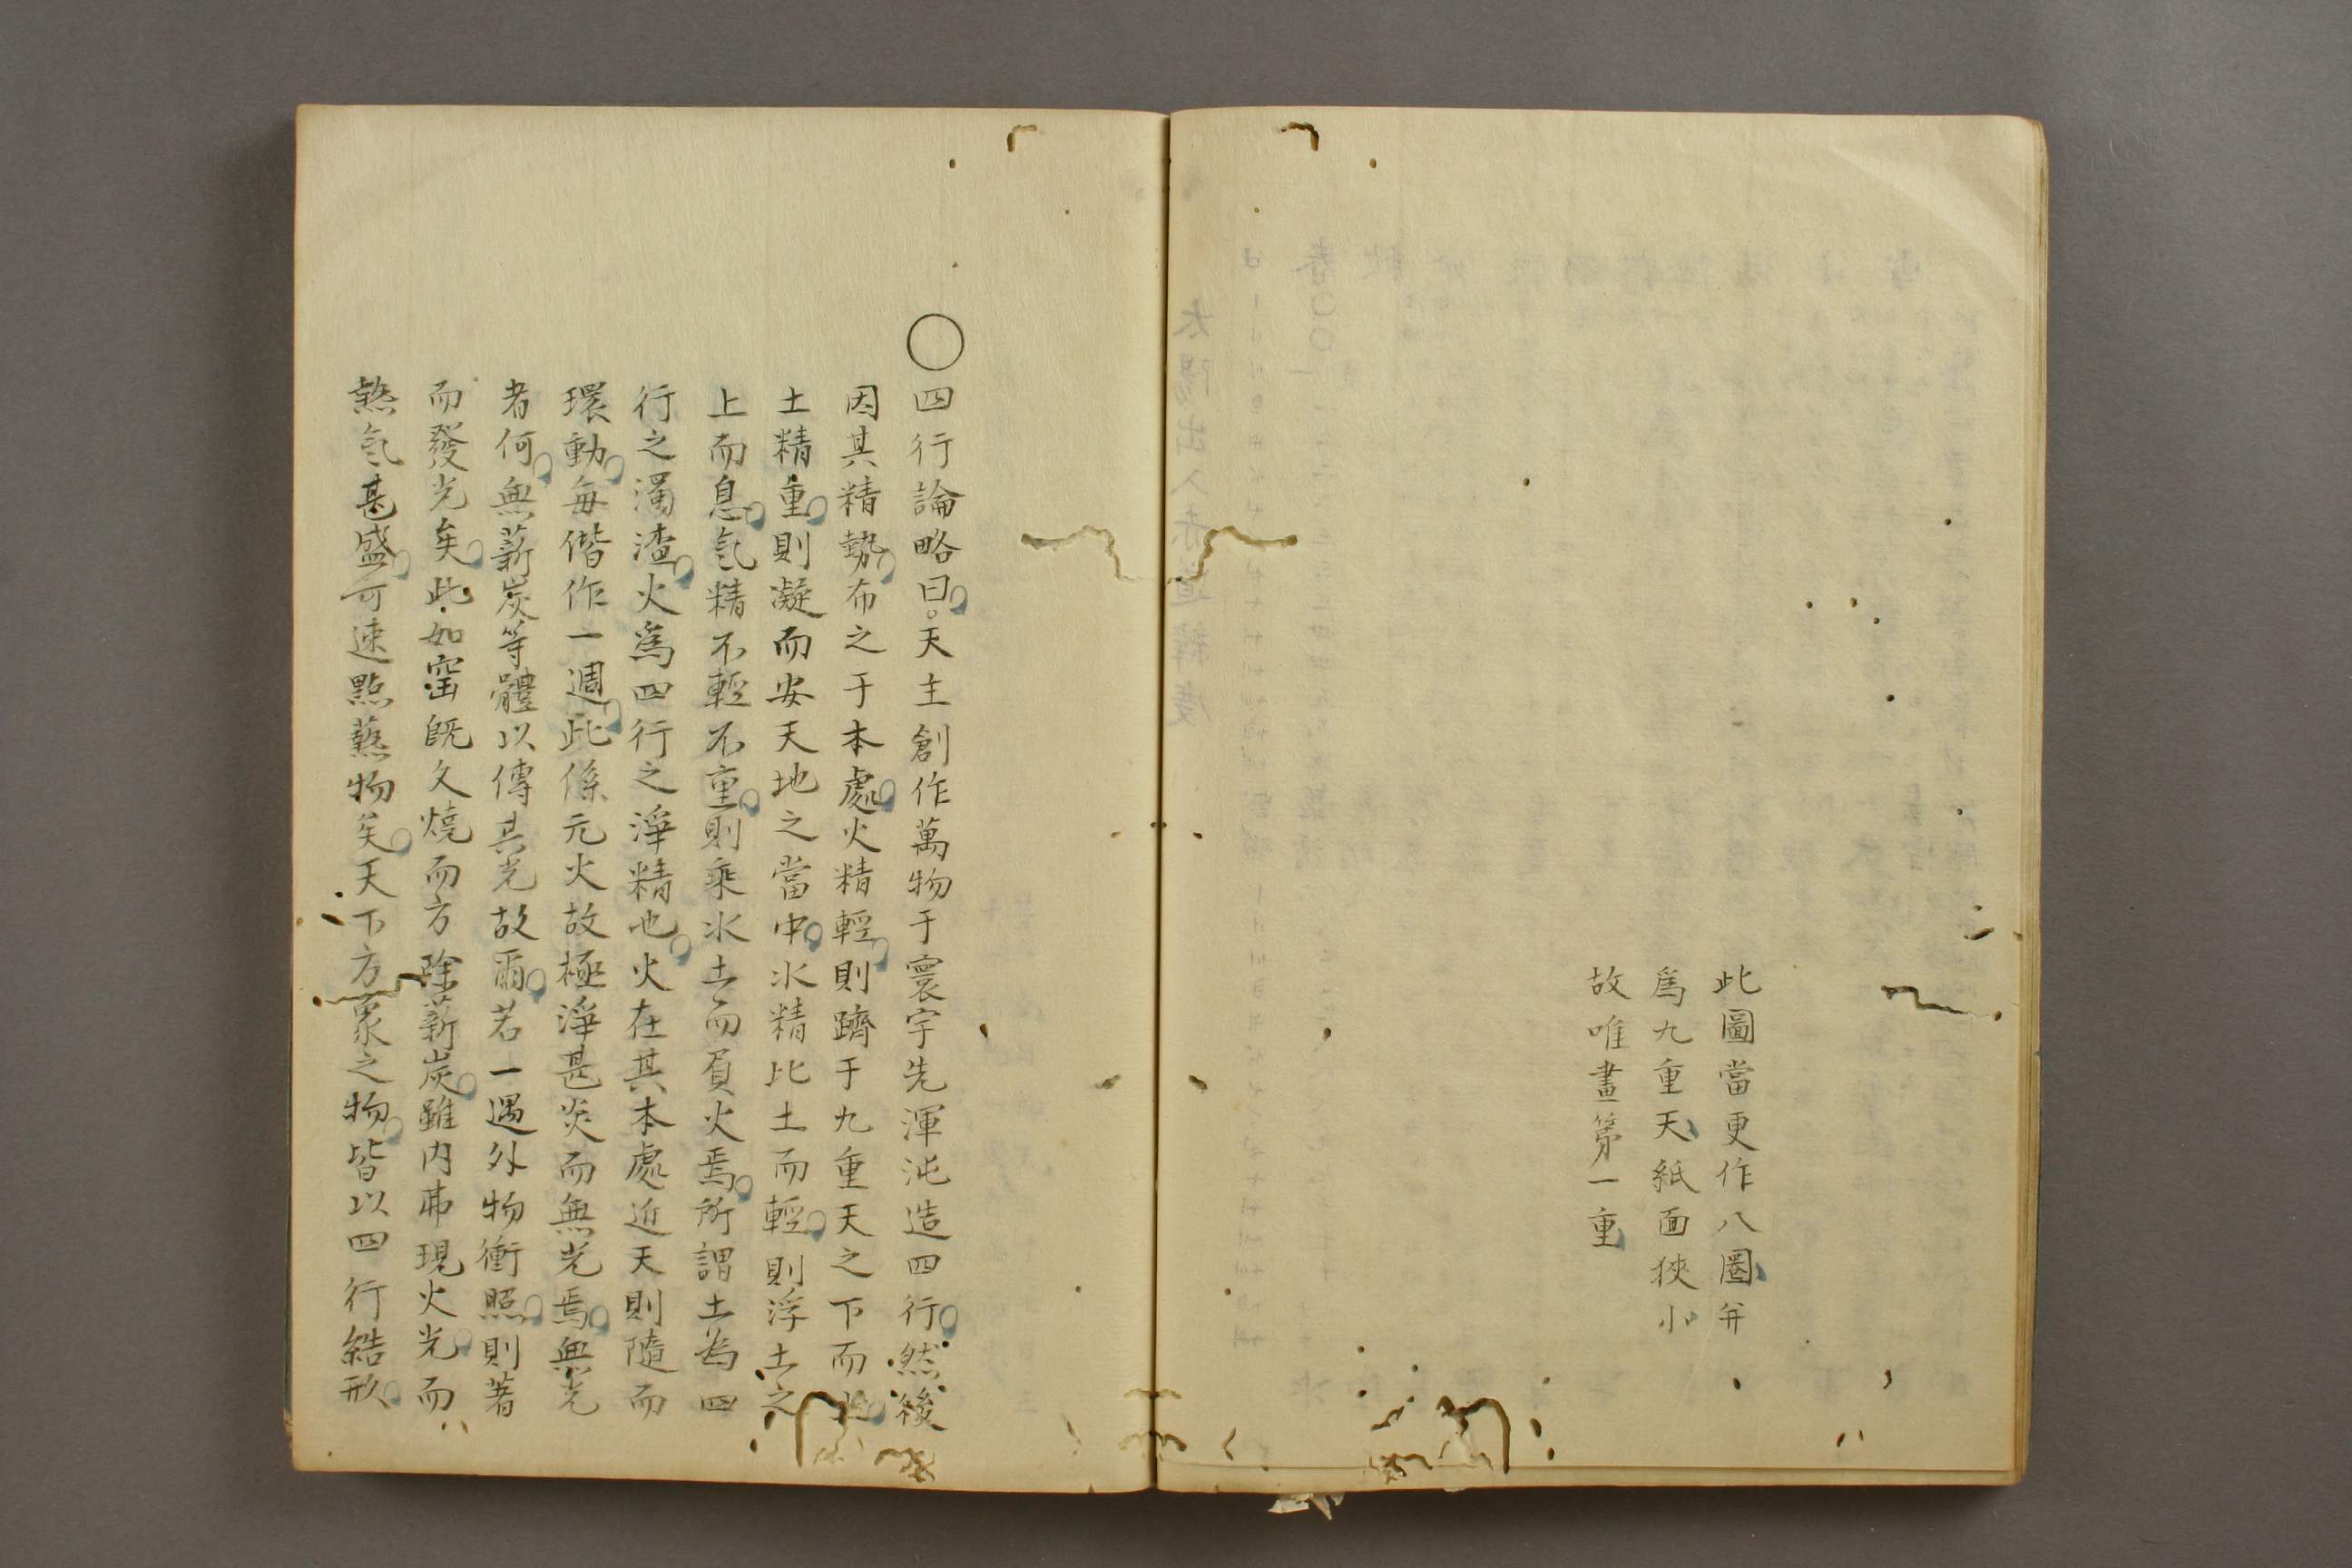 此圖當更作八圏并
爲九重天紙面狹小
故唯畫第一重
〇四行論略曰。天主創作萬物于寰宇先渾沌造四行然後
因其精勢布之于本處火精輕則躋于九重天之下而止
土精重則凝而安天地之當中水精比土而輕則浮土之
上而息氣精不輕不重則乘水土而負火焉所謂土為四
行之濁渣火爲四行之淨精也火在其本處近天則隨而
環動每偕作一週此係元火故極淨甚炎而無光焉無光
者何無薪炭等體以傳其光故爾若一遇外物衝照則著
而發光矣此如窑既久燒而方除薪炭雖內弗現火光而
熱氣甚盛可速點爇物矣天下方象之物皆以四行結形